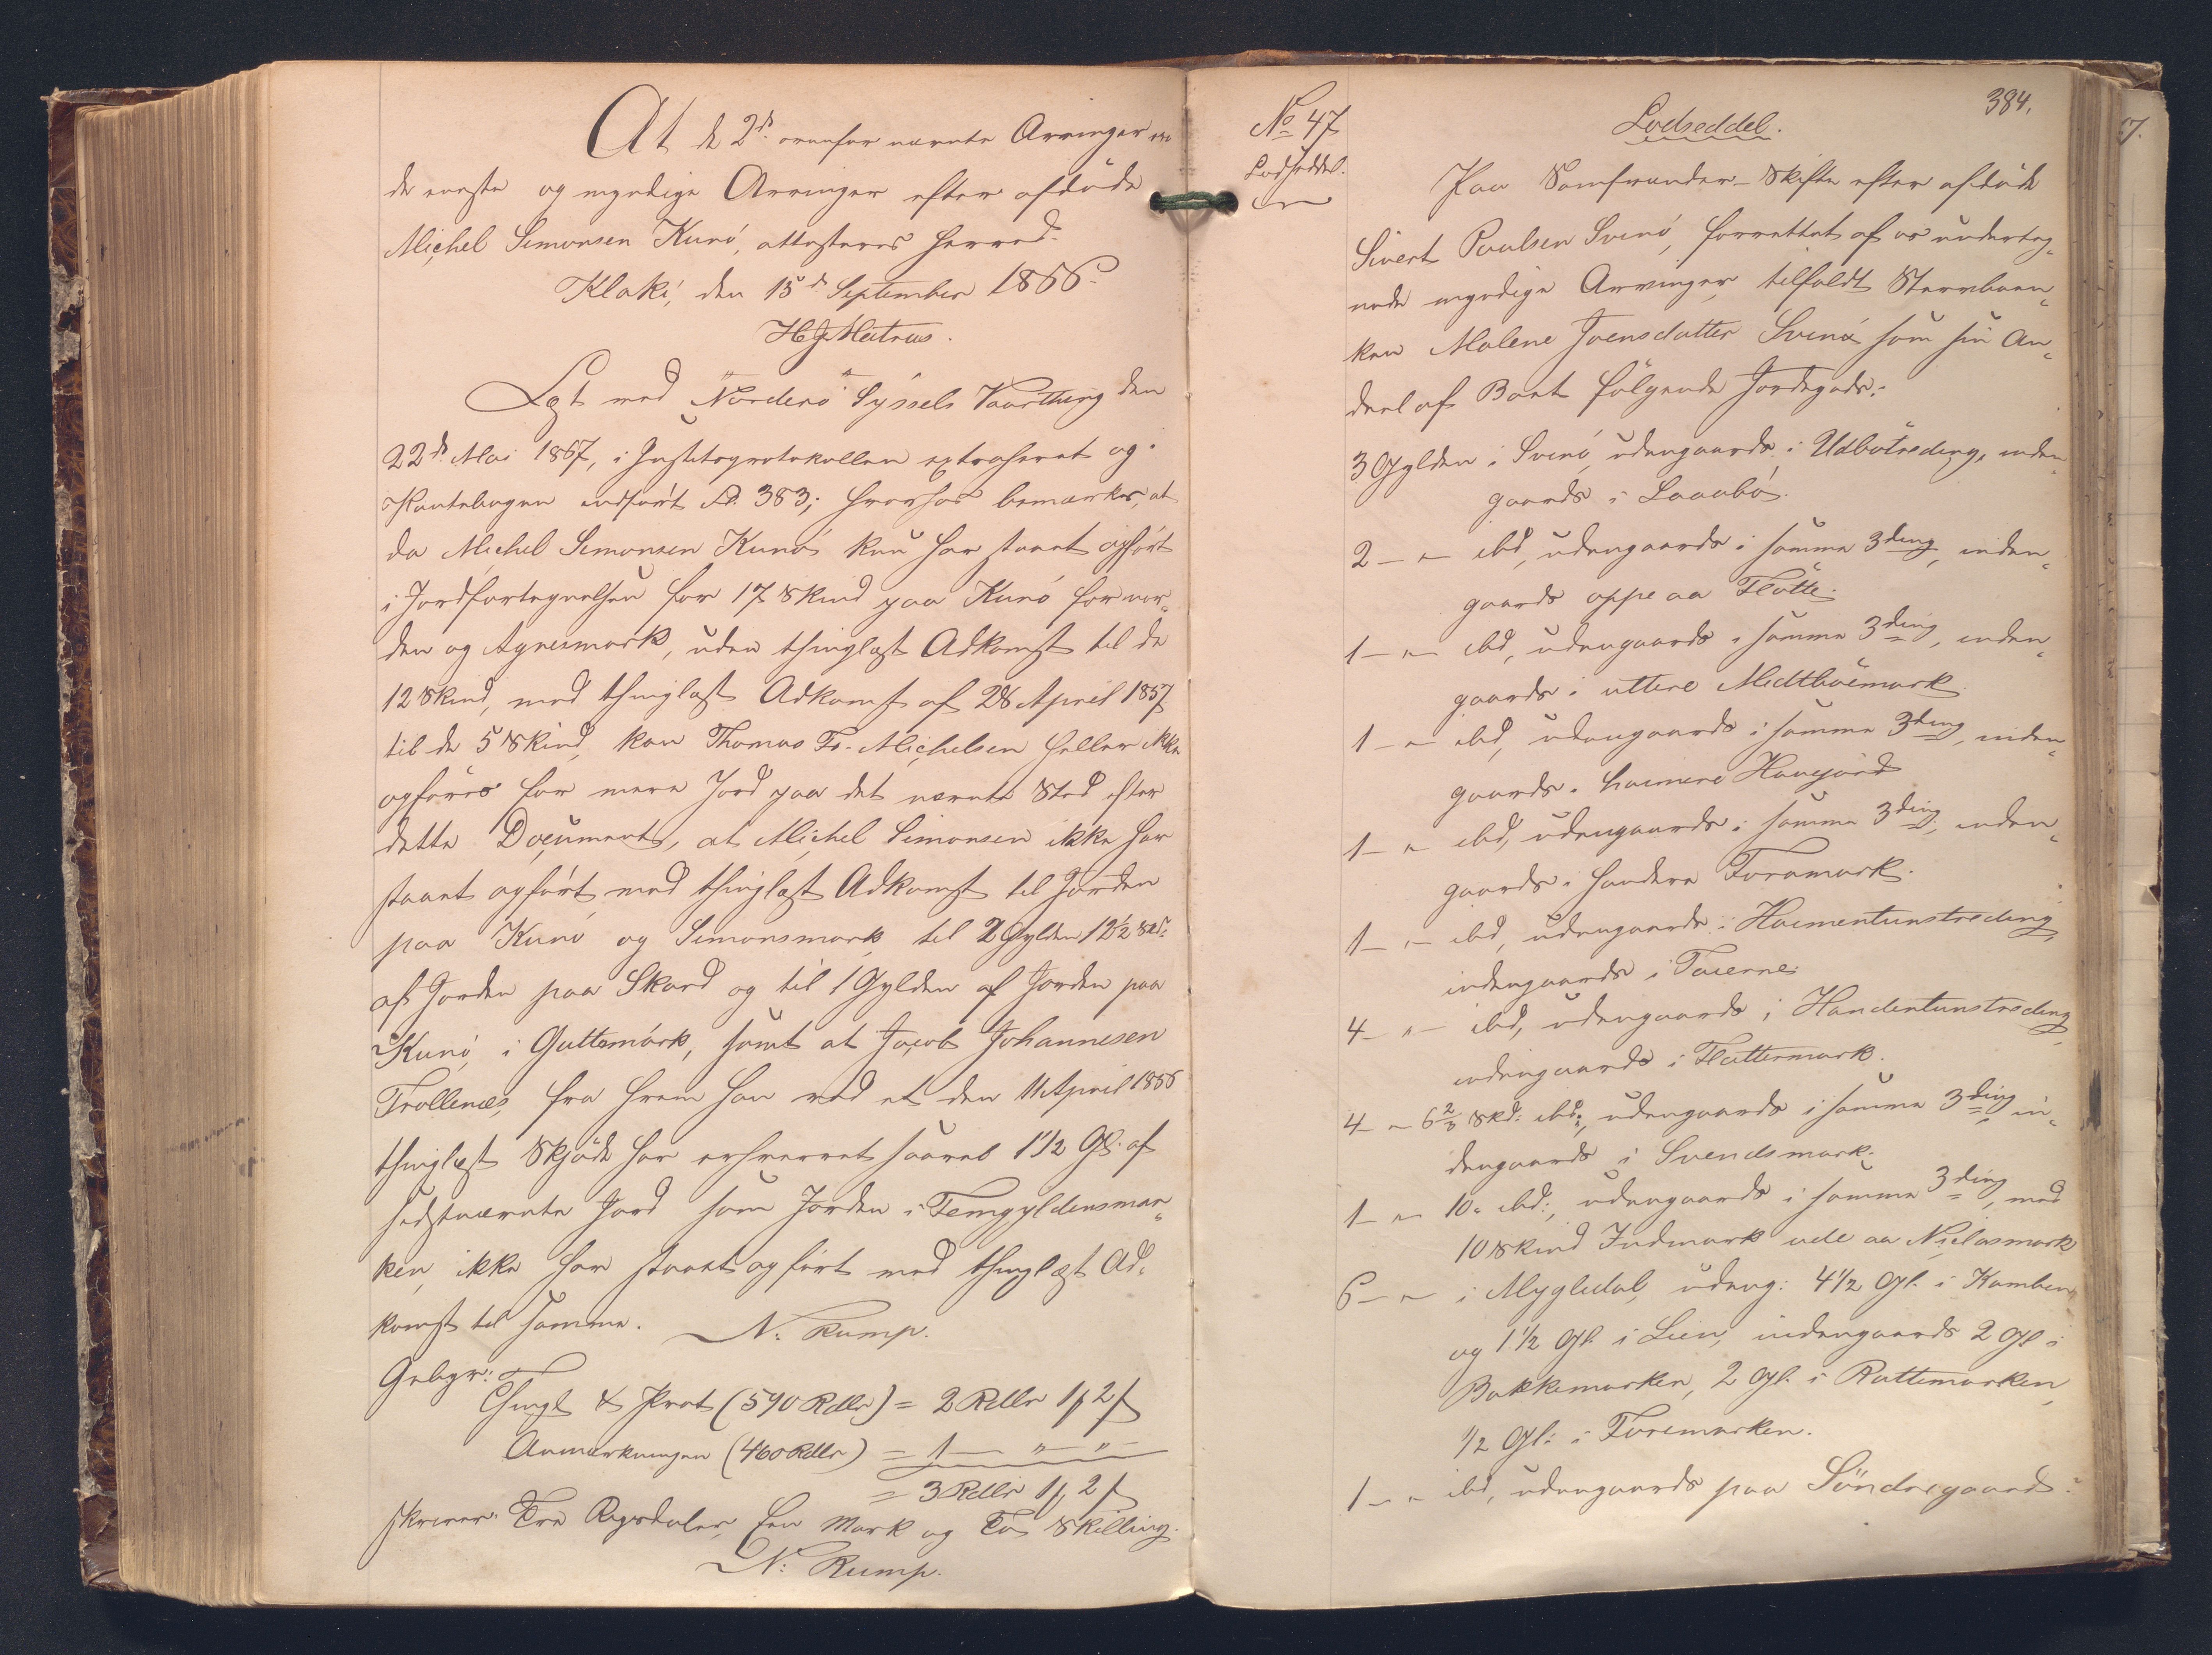 At de 2de ovenfor nævnte Arvinger ere
de eneste og myndige Arvinger efter afdøde
Michel Simonsen Kunö, attesteres herved.
Klaki, den 15de September 1866.
HJMatras.
Læst ved Norderö Syssels Vaarthing den
22de Mai 1867, i Justitsprotokollen extraheret og
Pantebogen indfört Fol. 383; hvorhos bemærkes, at
da Michel Simonsen Kunö kun har staaet opfört
i Jordfortegnelsen for 17 Skind paa Kunö for nor-
den og Agnesmörk, uden thinglæst Adkomst til de
12 Skind, med thinglæst Adkomst af 28 April 1857
til de 5 Skind, kan Thomas Fr. Michelsen heller ikke
opföres for mere Jord paa det nævnte Sted efter
dette Document, at Michel Simonsen ikke har
staaet opfört med thinglæst Adkomst til Jorden
paa Kunö og Simonsmörk, til 2 Gylden 12½ Skd.
af Jorden paa Skard og til 1 Gylden af Jorden paa
Kunö, i Guttemörk, samt at Jacob Johannesen
Trollenæs, fra hvem han ved et den 11 April 1866
thinglæst Skjöde har erhvervet saavel 1½ Gl. af
sidstnævnte Jord som Jorden i Femgyldensmar-
ken, ikke har staaet opfört med thinglæst Ad-
komst til samme. N. Rump.
Gebyr:
Thingl & Prot (590 Rdlr) = 2 Rdlr 1 ß 2 ß
Anmærkningen (460 Rdlr) = 1 — „ — „ —
= 3 Rdlr 1 ß 2 ß
skriver: Tre Rigsdaler, Een Mark og To Skilling.
N. Rump.
384.
No 47
Lodseddel.
Lodseddel.
Paa Samfrænder-Skifte efter afdöde
Sivert Poulsen Svinö, forrettet af os underteg-
nede myndige Arvinger, tilfaldt Stervboen-
ken Malene Joensdatter Svinö som sin An-
deel af Boet fölgende Jordegods:
3 Gylden i Svinö, udengaards i Udbötreding, inden-
gaards i Laaabö.
2 — „ — ibd, udengaards i samme 3ding, inden-
gaards oppe aa Flötte.
1 — „ — ibd, udengaards i samme 3ding, inden-
gaards i uttere Midtböemark
1 — „ — ibd, udengaards i samme 3ding, inden-
gaards i haimere Havgjörd
1 — „ — ibd, udengaards i samme 3ding, inden-
gaards i handere Foramark.
1 — „ — ibd, udengaards i Haimentunstreding,
indengaards i Taierne
4 — „ — ibd, udengaards i Handentunstreding,
indengaards i Flattermark.
4 — „ 6⅔ Skd. ibd., udengaards i samme 3ding, in-
dengaards i Svendsmark.
1 — „ — 10 „ ibd., udengaards i samme 3ding, med
10 Skind Indmark ude aa Niclasmark
6 — „ — i Mygledal, udeng: 4½ Gl. i Kamben
og 1½ Gl. i Lien, indengaards 2 Gl. i
Bakkemarken, 2 Gl. i Rattemarken,
½ Gl. i Foremarken.
1 — „ — ibd, udengaards paa Söndregaard